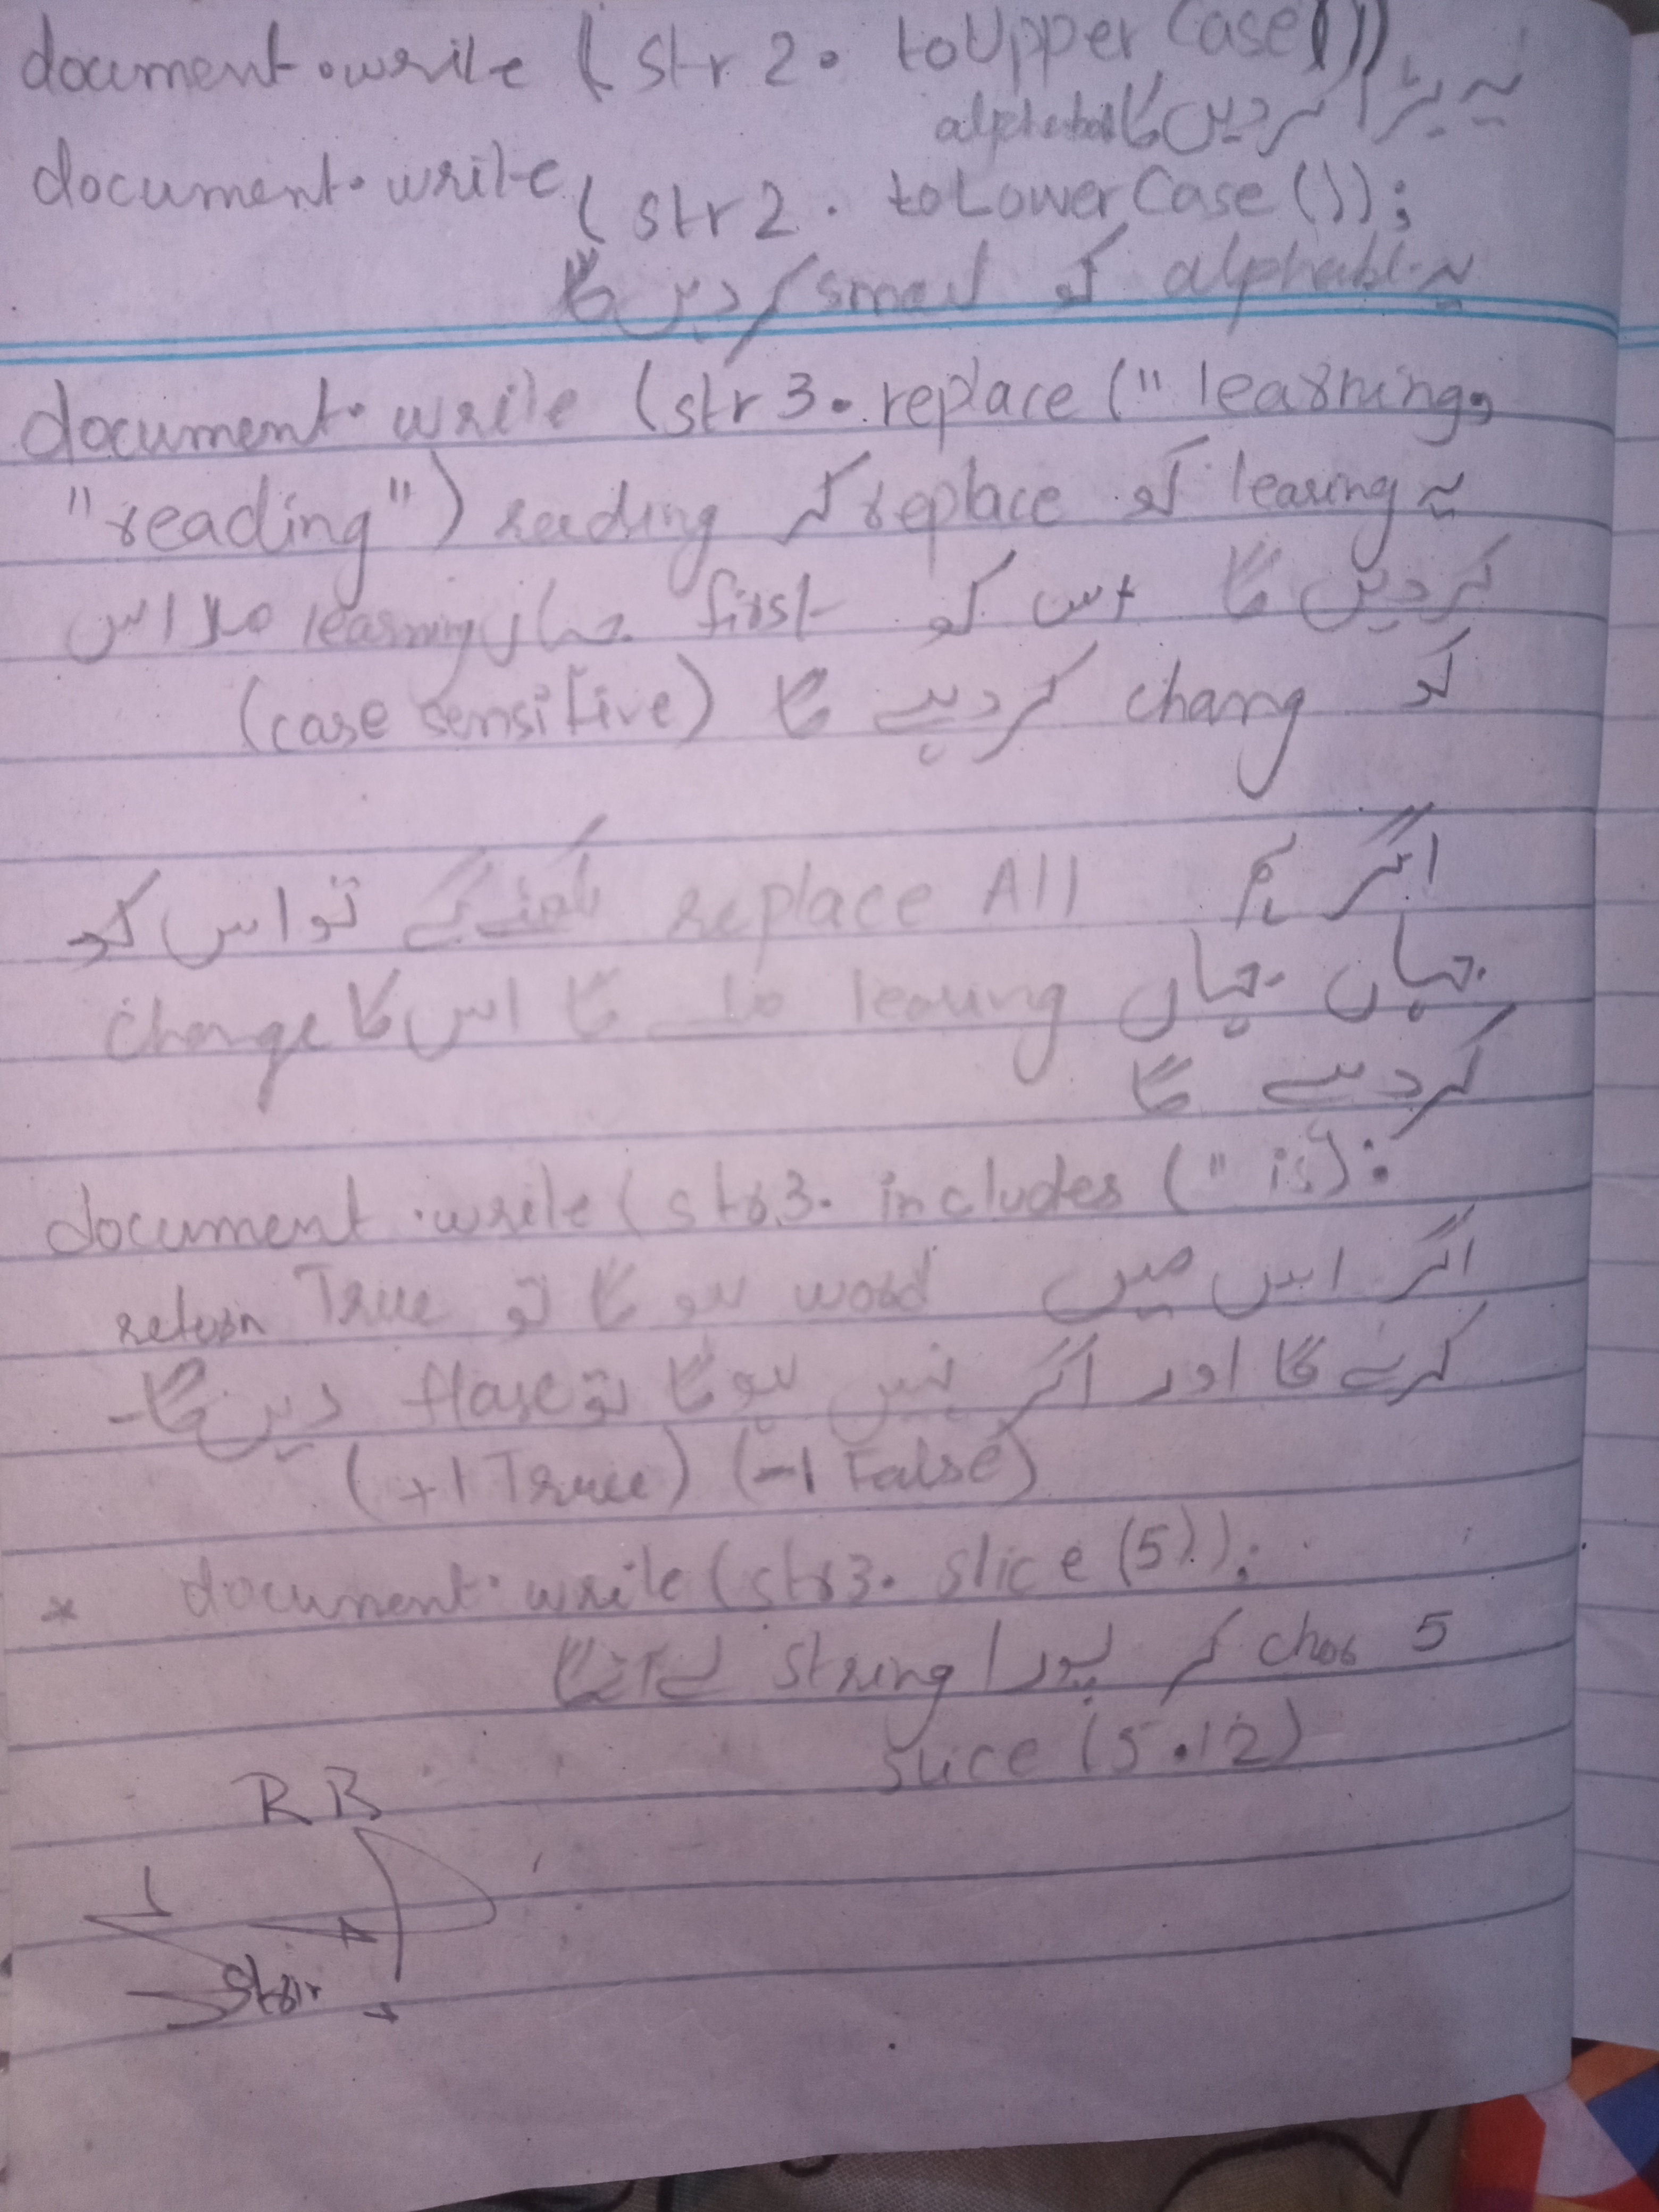 document.write (str 2. toUpper Case())
یہ بڑا کردیں گا alphabat
document.write (str 2. toLowerCase ());
یہ alphabt کو small کردیں گا
document.write (str 3. replace (" learning,
"reading") یہ learing کو replace کر reading
کردیں گا اس کو first جہاں learning ملا اس
کو chang کردیے گا (case sensitive)
اگر ہم replace All لکھنے گے تو اس کو
جہاں جہاں learing ملے گا اس کا change
کردیے گا
document.write (str3. includes (" is"):
اگر اس میں word ہو گا تو True return
کرے گا اور اگر نہیں ہوگا تو flase دیں گا۔
(+1 True) (-1 False)
* document.write (str3. slice (5));
5 char کر پورا string لے آئے گا
slice (5.12)
R B